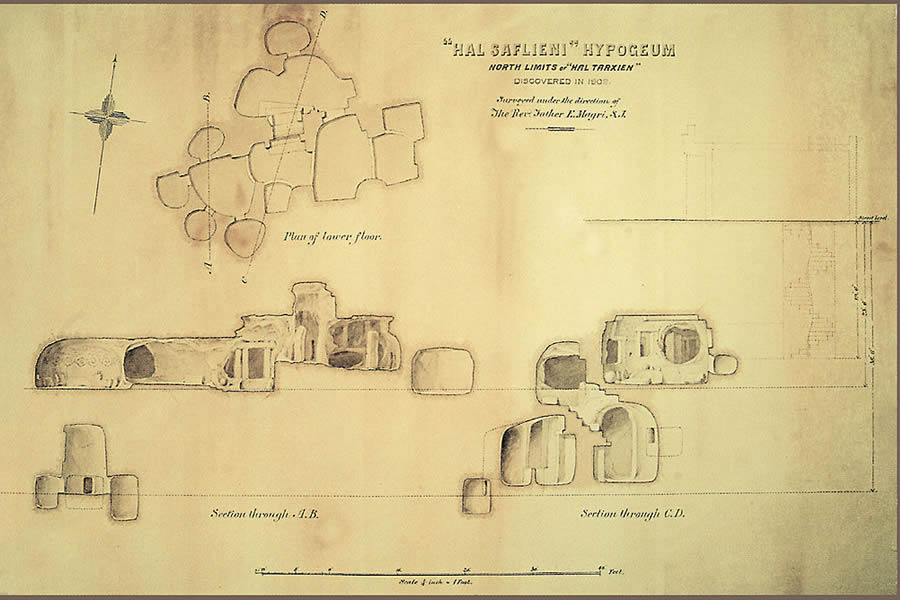 "HAL SAFLIENI" HYPOGEUM
NORTH LIMITS of "HAL TARXIEN"
DISCOVERED IN 1902.
Surveyed under the direction of
The Rev: Father E. Magri, S.J.
D.
B.
A
C.
Plan of lower floor.
Street Level
Section through A.B.
Section through C.D.
Feet.
Scale ¼ inch = 1 Foot.